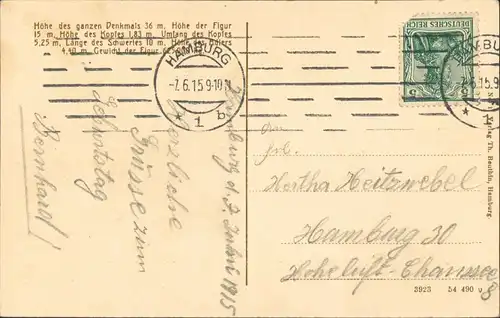 Höhe des ganzen Denkmals 36 m, Höhe der Figur
15 m, Höhe des Kopfes 1,83 m, Umfang des Kopfes
5,25 m, Länge des Schwertes 10 m, Höhe des Adlers
4,40 m, Gewicht der Figur
HAMBURG
-7.6.15.9-10
* 1 b
DEUTSCHES REICH
5
HAMBURG
-7.6.15.9
* 1
Hamburg d. 7. Juni 1915
Herzliche
Grüsse zum
Geburtstag
Bernhard!
An
Frl.
Hertha Heitzwebel
Hamburg 30
Hoheluft-Chaussee
8
Verlag Th. Benthin, Hamburg.
3923 54 490 v